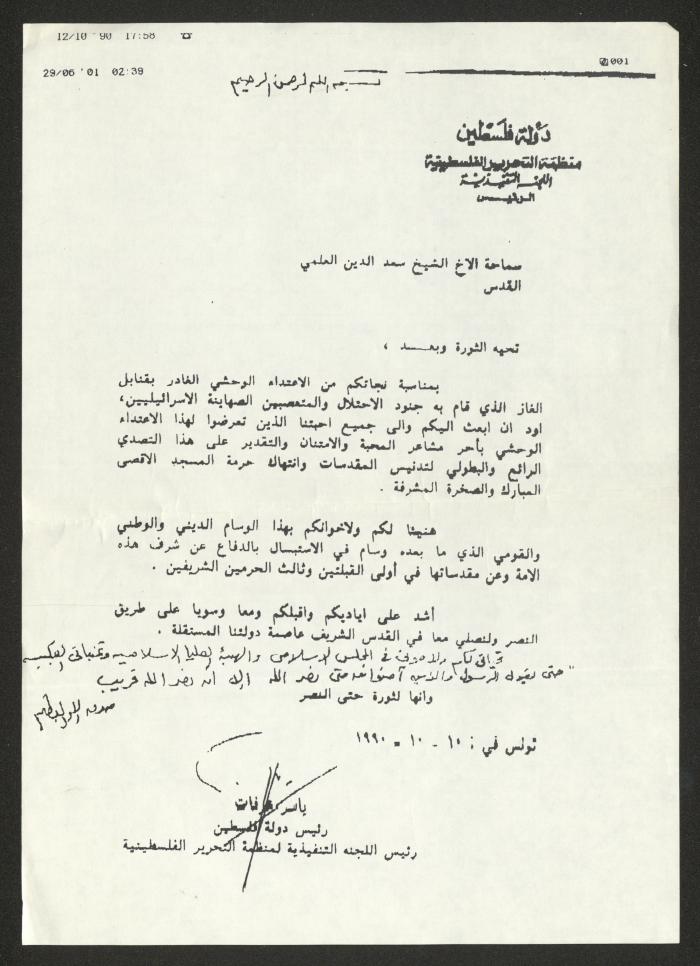 12/10 '90 17:58
29/06 '01 02:39
001
بسم الله الرحمن الرحيم
دولة فلسطين
منظمة التحرير الفلسطينية
اللجنة التنفيذية
الرئيس
سماحة الاخ الشيخ سعد الدين العلمي
القدس
تحيه الثورة وبعـــد ،
بمناسبة نجاتكم من الاعتداء الوحشي الغادر بقنابل
الغاز الذي قام به جنود الاحتلال والمتعصبين الصهاينة الاسرائيليين،
اود ان ابعث اليكم والى جميع احبتنا الذين تعرضوا لهذا الاعتداء
الوحشي بأحر مشاعر المحبة والامتنان والتقدير على هذا التصدي
الرائع والبطولي لتدنيس المقدسات وانتهاك حرمة المسجد الاقصى
المبارك والصخرة المشرفة .
هنيئا لكم ولاخوانكم بهذا الوسام الديني والوطني
والقومي الذي ما بعده وسام في الاستبسال بالدفاع عن شرف هذه
الامة وعن مقدساتها في أولى القبلتين وثالث الحرمين الشريفين .
أشد على اياديكم واقبلكم ومعا وسويا على طريق
النصر ولنصلي معا في القدس الشريف عاصمة دولتنا المستقلة .
في المجلس الاسلامي والهيئة العليا الاسلامية وتمنياتي القلبية
"حتى يقول الرسول والذين آمنوا معه متى نصر الله الا ان نصر الله قريب
صدق الله العظيم
وانها لثورة حتى النصر
تونس في : ١٠ - ١٠ - ١٩٩٠
ياسر عرفات
رئيس دولة فلسطين
رئيس اللجنه التنفيذية لمنظمة التحرير الفلسطينية